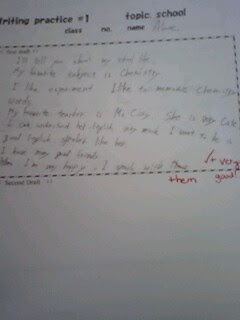 Writing practice #1 topic: school
class no. name
< First draft >
I'll tell you about my school life.
My favorite subject is Chemistry.
I like experiment I like to memorize Chemistry
words.
My favorite teacher is Ms. She is very cute
I can understand her English very much. I want to be a
good English speaker like her.
I have many good friends.
When I'm very happy, I speak with them
them
√+ very
good!
< Second Draft >